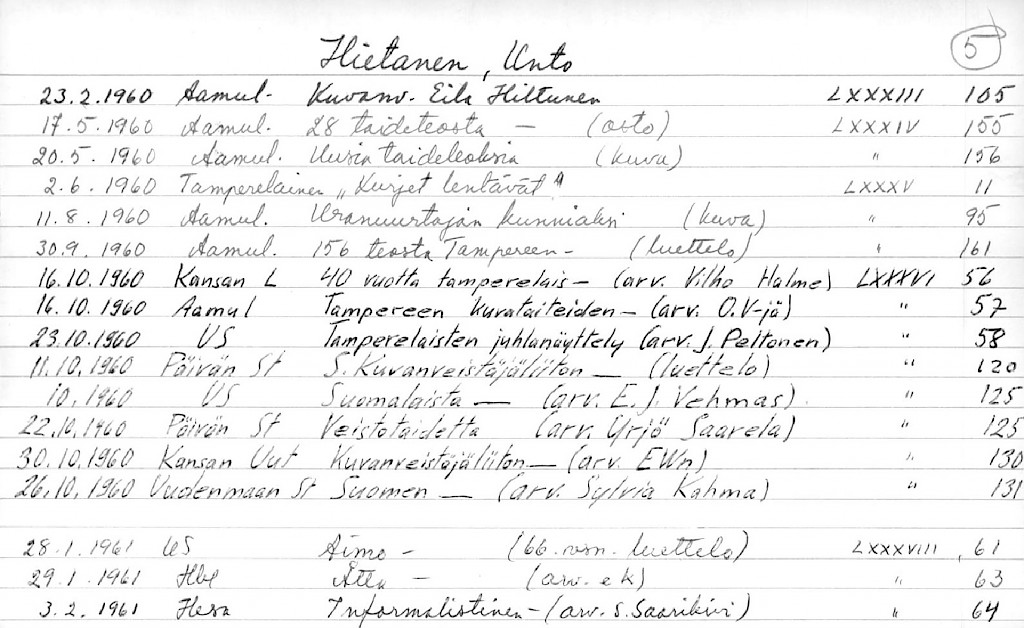 5
Hietanen, Unto
23.2.1960 Aamul- Kuvanv. Eila Hiltunen LXXXIII 105
17.5.1960 Aamul. 28 taideteosta — (osto) LXXXIV 155
20.5.1960 Aamul. Uusia taideteoksia (kuva) " 156
2.6.1960 Tamperelainen „Kurjet lentävät" LXXXV 11
11.8.1960 Aamul. Uranuurtajan kunniaksi (kuva) " 95
30.9.1960 Aamul. 156 teosta Tampereen- (luettelo) " 161
16.10.1960 Kansan L 40 vuotta tamperelais- (arv. Vilho Halme) LXXXVI 56
16.10.1960 Aamul Tampereen kuvataiteiden- (arv. O.V-jä) " 57
23.10.1960 US Tamperelaisten juhlanäyttely (arv. J. Peltonen) " 58
11.10.1960 Päivän St S. Kuvanveistäjäliiton — (luettelo) " 120
10.1960 US Suomalaista — (arv. E.J. Vehmas). " 125
22.10.1960 Päivän St Veistotaidetta (arv. Yrjö Saarela) " 125
30.10.1960 Kansan Uut Kuvanveistäjäliiton— (arv. EWn) " 130
26.10.1960 Uudenmaan St Suomen — (arv. Sylvia Kahma) " 131
28.1.1961 US Aimo - (66. vsn. luettelo) LXXXVIII, 61
29.1.1961 Hbl Åtta — (arv. ek) " 63
3.2.1961 Hesa Informalistinen- (arv. S. Saarikivi) " 64